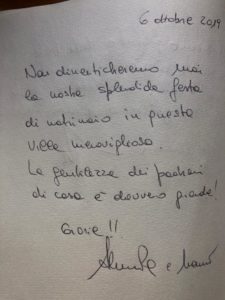 6 ottobre 2019
Non dimenticheremo mai
la nostra splendida festa
di matrimonio in questa
villa meravigliosa.
La gentilezza dei padroni
di casa è davvero grande!
Grazie!!
e